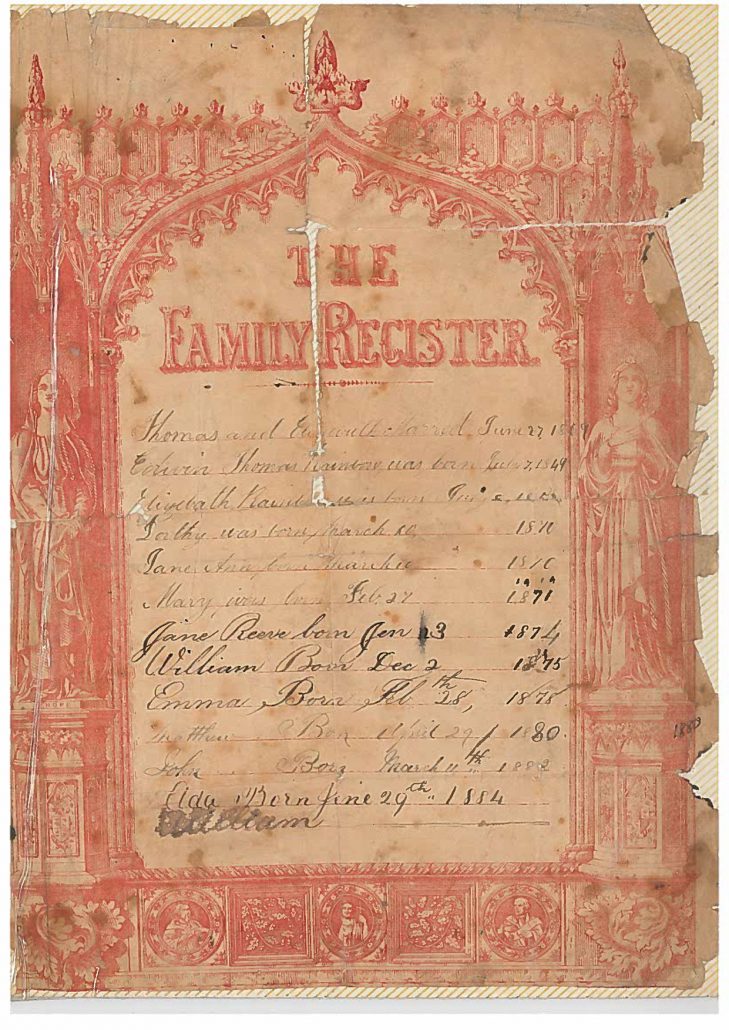 THE
FAMILY REGISTER
Thomas and Married June 27 18
Edwin Thomas Rainbow was born July 7, 1849
Elizebath was born
was born March 10, 18
Jane Ann born March 10 1870
Mary was born Feb 27 1871
Jane Reeve born Jen 13 1874
William Born Dec 2 1875
Emma Born Feb 28th, 1878
Matthew Bon April 29 1880
1880
John Born March 11th 1882
Elda Born June 29th 1884
William
HOPE